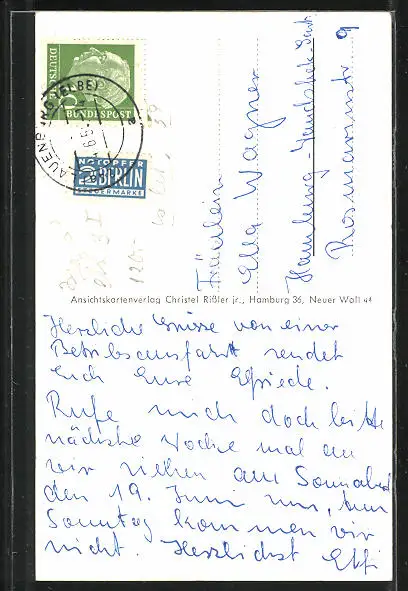 DEUTSCHE
BUNDESPOST
LAUENBURG (ELBE)
NOTOPFER
2 BERLIN
STEUERMARKE
Fräulein
Ella Wagner
Hamburg-Wandsbek-Gart.
Rosmarinstr 9
Ansichtskartenverlag Christel Rißler jr., Hamburg 36, Neuer Wall 44
Herzliche Grüsse von einer
Betriebsausfahrt sendet
Euch Eure Elfriede.
Rufe mich doch bitte
nächste Woche mal an
wir ziehen am Sonnabend
den 19. Juni um, am
Sonntag kommen wir
nicht. Herzlichst Effi